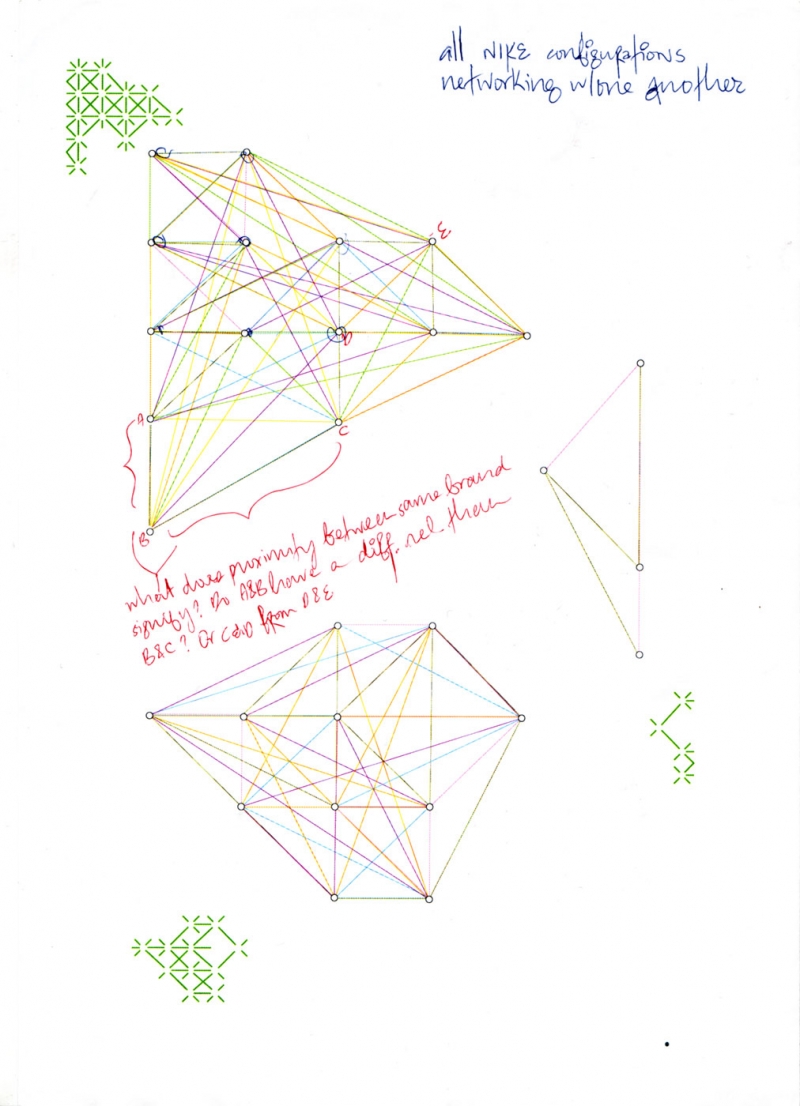 all NIKE configurations
networking w/one another
E
D
A
C
B
what does proximity between same brand
signify? Do A&B have a diff. rel. than
B&C? Or C&D from D&E